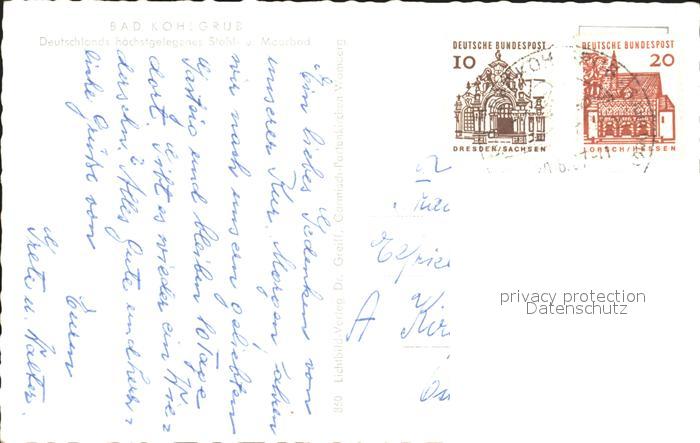 BAD KOHLGRUB
Deutschlands höchstgelegenes Stahl- u. Moorbad
Ein liebes Gedenken von
unserer Kur. Morgen fahren
wir nach unserm geliebten
und bleiben 10 Tage
dort. Gibt es wieder ein Wie=
dersehn. Alles Gute und herz=
liche Grüße von
Euren
Grete u. Walter.
860 Lichtbild-Verlag Dr. Greiff, Garmisch-Partenkirchen
DEUTSCHE BUNDESPOST
10
DRESDEN/SACHSEN
DEUTSCHE BUNDESPOST
20
LORSCH/HESSEN
A
privacy protection
Datenschutz